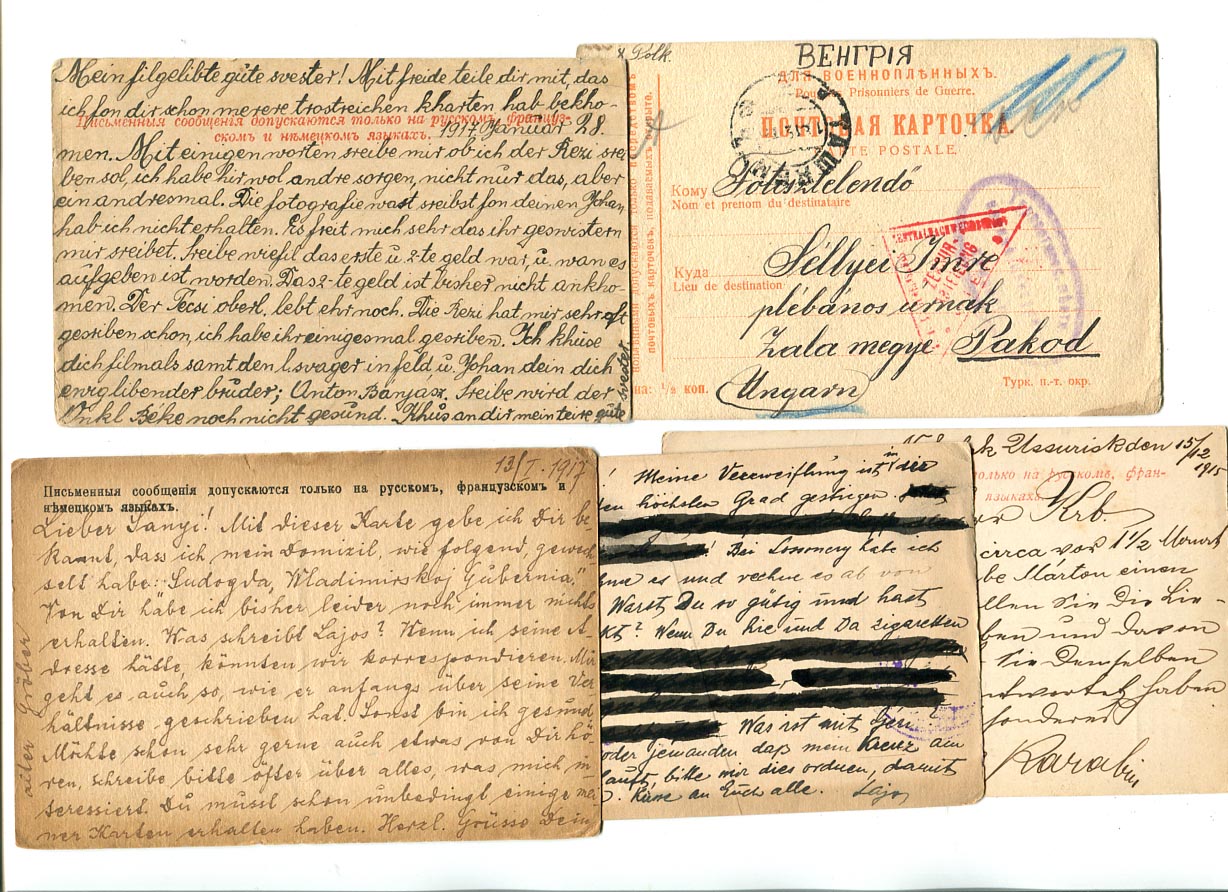 Mein filgelibte gute svester! Mit freide teile dir mit, das
ich fon dir schon merere trostreichen kharten hab bekho-
Письменныя сообщенія допускаются только на русскомъ, француз-
скомъ и нѣмецкомъ языкахъ. 1917 Januar 28.
men. Mit einigen worten sreibe mir ob ich der Rezi srei
ben sol, ich habe hir wol andre sorgen, nicht nur das, aber
ein andresmal. Die fotografie wast sreibst fon deinen Johan
hab ich nicht erhalten. Es freit mich sehr das ihr geswistern
mir sreibet. Sreibe wiefil das erste u. 2-te geld war, u. wan es
aufgeben ist worden. Das 2-te geld ist bisher nicht ankho-
men. Der Tecsi oberl. lebt ehr noch. Die Rezi hat mir sehr oft
gesriben schon, ich habe ihr einigesmal gesriben. Ich khüse
dich filmals samt den l. svager in feld, u. Johan dein dich
ewiglibender bruder; Anton Bánjász. Sreibe wird der
Onkl Beke noch nicht gesund. Khüs an dir mein teire gute
svester
Polk.
ВЕНГРІЯ
ДЛЯ ВОЕННОПЛѢННЫХЪ.
Pour Prisonniers de Guerre.
ПОЧТОВАЯ КАРТОЧКА.
CARTE POSTALE.
Кому
Nom et prenom du destinataire
Séllyei Imre
Куда
Lieu de destination
plébános urnak
Zala megye Pakod
Ungarn
на: 1/2 коп.
Турк. п.-т. окр.
почтовыхъ карточекъ, подаваемыхъ открыто.
13/I. 1917
Письменныя сообщенія допускаются только на русскомъ, французскомъ и
нѣмецкомъ языкахъ.
Lieber Sanyi! Mit dieser Karte gebe ich Dir be
kannt, dass ich mein Domizil, wie folgend, gewech
selt habe: "Sudogda, Wladimirskoj Gubernia."
Von Dir habe ich bisher leider noch immer nichts
erhalten. Was schreibt Lajos? Wenn ich seine A
dresse hätte, könnten wir korrespondieren. Mir
geht es auch so, wie er anfangs über seine Ver
hältnisse geschrieben hat. Sonst bin ich gesund
Möchte schon sehr gerne auch etwas von Dir hö
ren, schreibe bitte öfter über alles, was mich in
teressiert. Du musst schon unbedingt einige mei
ner Karten erhalten haben. Herzl. Grüsse Dein
alter Gröber
! Meine Verzweiflung ist in die
höchsten Grad gestiegen.
! Bei Lossonczy habe ich
es und rechne es ab von
Warst Du so gütig und hast
kt? Wenn Du hie und da Zigaretten
Was ist mit Geri?
oder jemanden daß mein Kreuz am
läuft, bitte mir dies ordnen, damit
Küsse an Euch alle. Lajos
Ussurisk den 15/12
1915
только на русскомъ, фран-
языкахъ.
Krb.
circa vor 1 1/2 Monat
be Márton einen
llen Sie die Lie-
ben und davon
Sie denselben
ntwortet haben
sonderes
Karabin